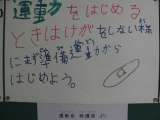 運動をはじめる
ときはけがをしない様
にまず準備運動から
はじめよう。
運動部